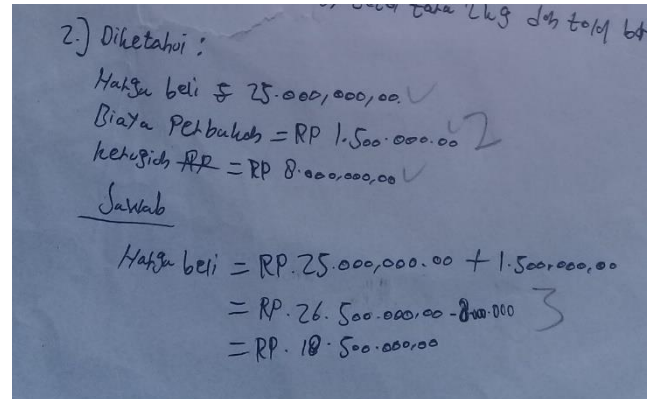 tara 2kg dan total
2.) Diketahui :
Harga beli = 25.000,000,00.
Biaya Perbukah = RP 1.500.000.00 2
kerugian = RP 8.000,000,00
Jawab
Harga beli = RP.25.000,000.00 + 1.500,000,00
= RP.26.500.000,00 - 8.000.000 3
= RP. 18.500.000,00